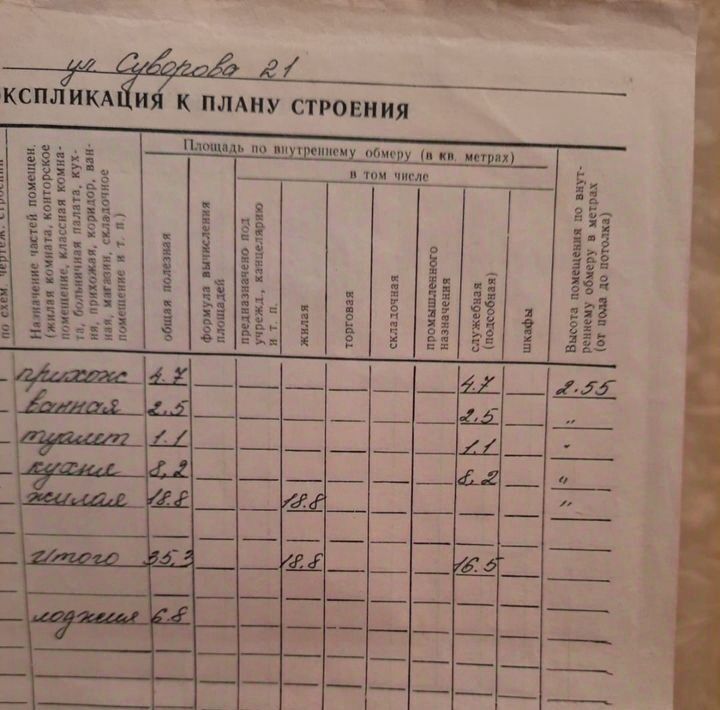 ул. Суворова 21
КСПЛИКАЦИЯ К ПЛАНУ СТРОЕНИЯ
по схем. чертеж. строений
Назначение частей помещен.
(жилая комната, конторское
помещение, классная комна-
та, больничная палата, кух-
ня, прихожая, коридор, ван-
ная, магазин, складочное
помещение и т. п.)
Площадь по внутреннему обмеру (в кв. метрах)
общая полезная
формула вычисления
площадей
в том числе
предназначено под
учрежд., канцелярию
и т. п.
жилая
торговая
складочная
промышленного
назначения
служебная
(подсобная)
шкафы
Высота помещения по внут-
реннему обмеру в метрах
(от пола до потолка)
прихож 4.7 4.7 2.55
ванная 2.5 2.5 "
туалет 1.1 1.1 "
кухня 8,2 8,2 "
жилая 18.8 18.8 "
итого 35,3 18.8 16.5
лоджия 6.8